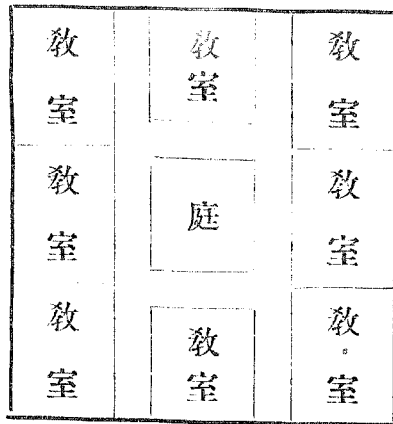 教室
教室
教室
教室
庭
教室
教室
教室
教室